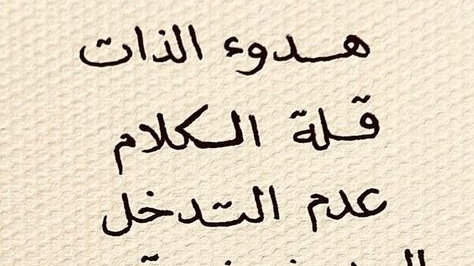 هدوء الذات
قلة الكلام
عدم التدخل